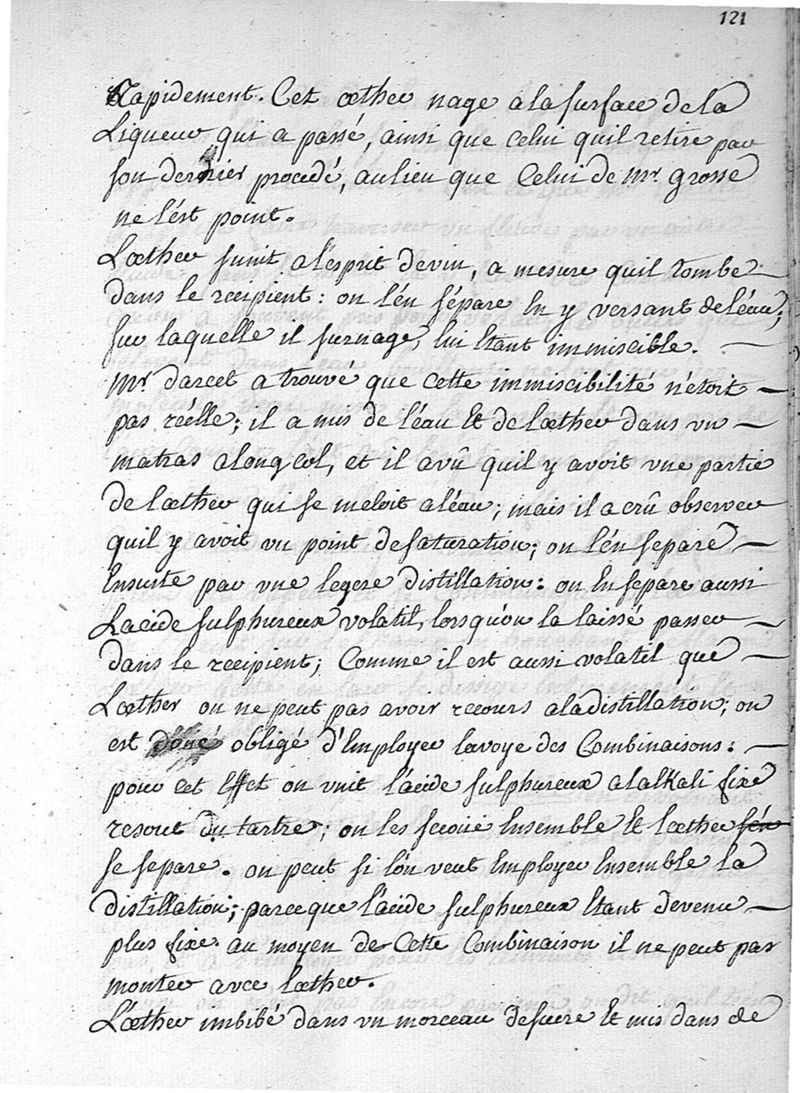 121
Rapidement. Cet œther nage a la surface de la
Liqueur qui a passé, ainsi que celui quil retire par
son dernier procedé, aulieu que Celui de mr. grosse
ne l'ést point.
Lœther sunit a l'esprit de vin, a mesure quil tombe
dans le recipient: on l'én sépare En y versant de l'éau;
sur laquelle il surnage, lui Etant immiscible.
mr darcet a trouvé que cette immiscibilité n'étoit
pas réélle; il a mis de l'éau Et de lœther dans vn
matras a long col, et il a vû quil y avoit vne partie
de lœther qui se meloit a léau; mais il a crû observer
quil y avoit vn point de saturation; on l'én separe
Ensuite par vne legere distillation: on En sépare aussi
Lacide sulphureux volatil, lorsquón la laissé passer
dans le recipient; Comme il est aussi volatil que
Lœther on ne peut pas avoir recours a la distillation; on
est donc obligé d'Employer la voye des Combinaisons:
pour cet Effet on vnit l'ácide sulphureux a lalkali fixe
resout du tartre; on les secoüe Ensemble Et lœther sén
se separe. on peut si l'ón veut Employer Ensemble la
distillation; parceque l'ácide sulphureux Etant devenu
plus fixe au moyen de Cette Combinaison il ne peut pas
monter avec lœther.
L'œther imbibé dans vn morceau de sucre Et mis dans de